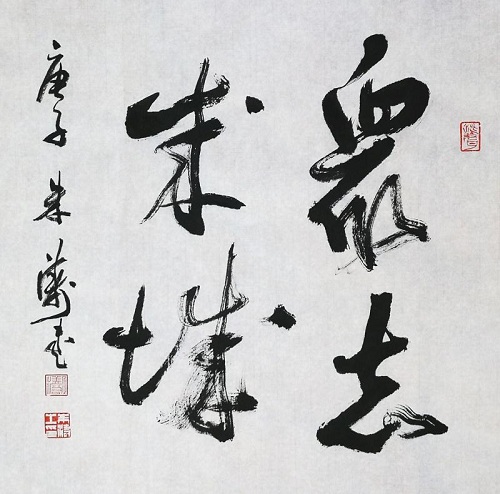 眾志
成城
庚子 朱